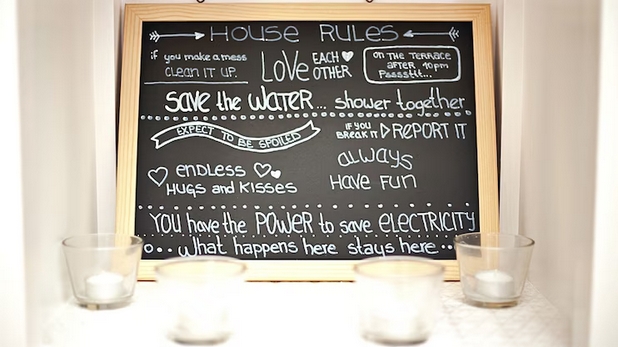 HOUSE RULES
if you make a mess
CLEAN IT UP.
LOVE EACH OTHER
ON THE TERRACE
AFTER 10pm
Psssstit...
SAVE the WATER... shower together
EXPECT TO BE SPOILED
IF YOU BREAK IT REPORT IT
ENDLESS
HUGS and KISSES
ALWAYS
HAVE FUN
YOU have the POWER to save ELECTRICITY
what happens here stays here